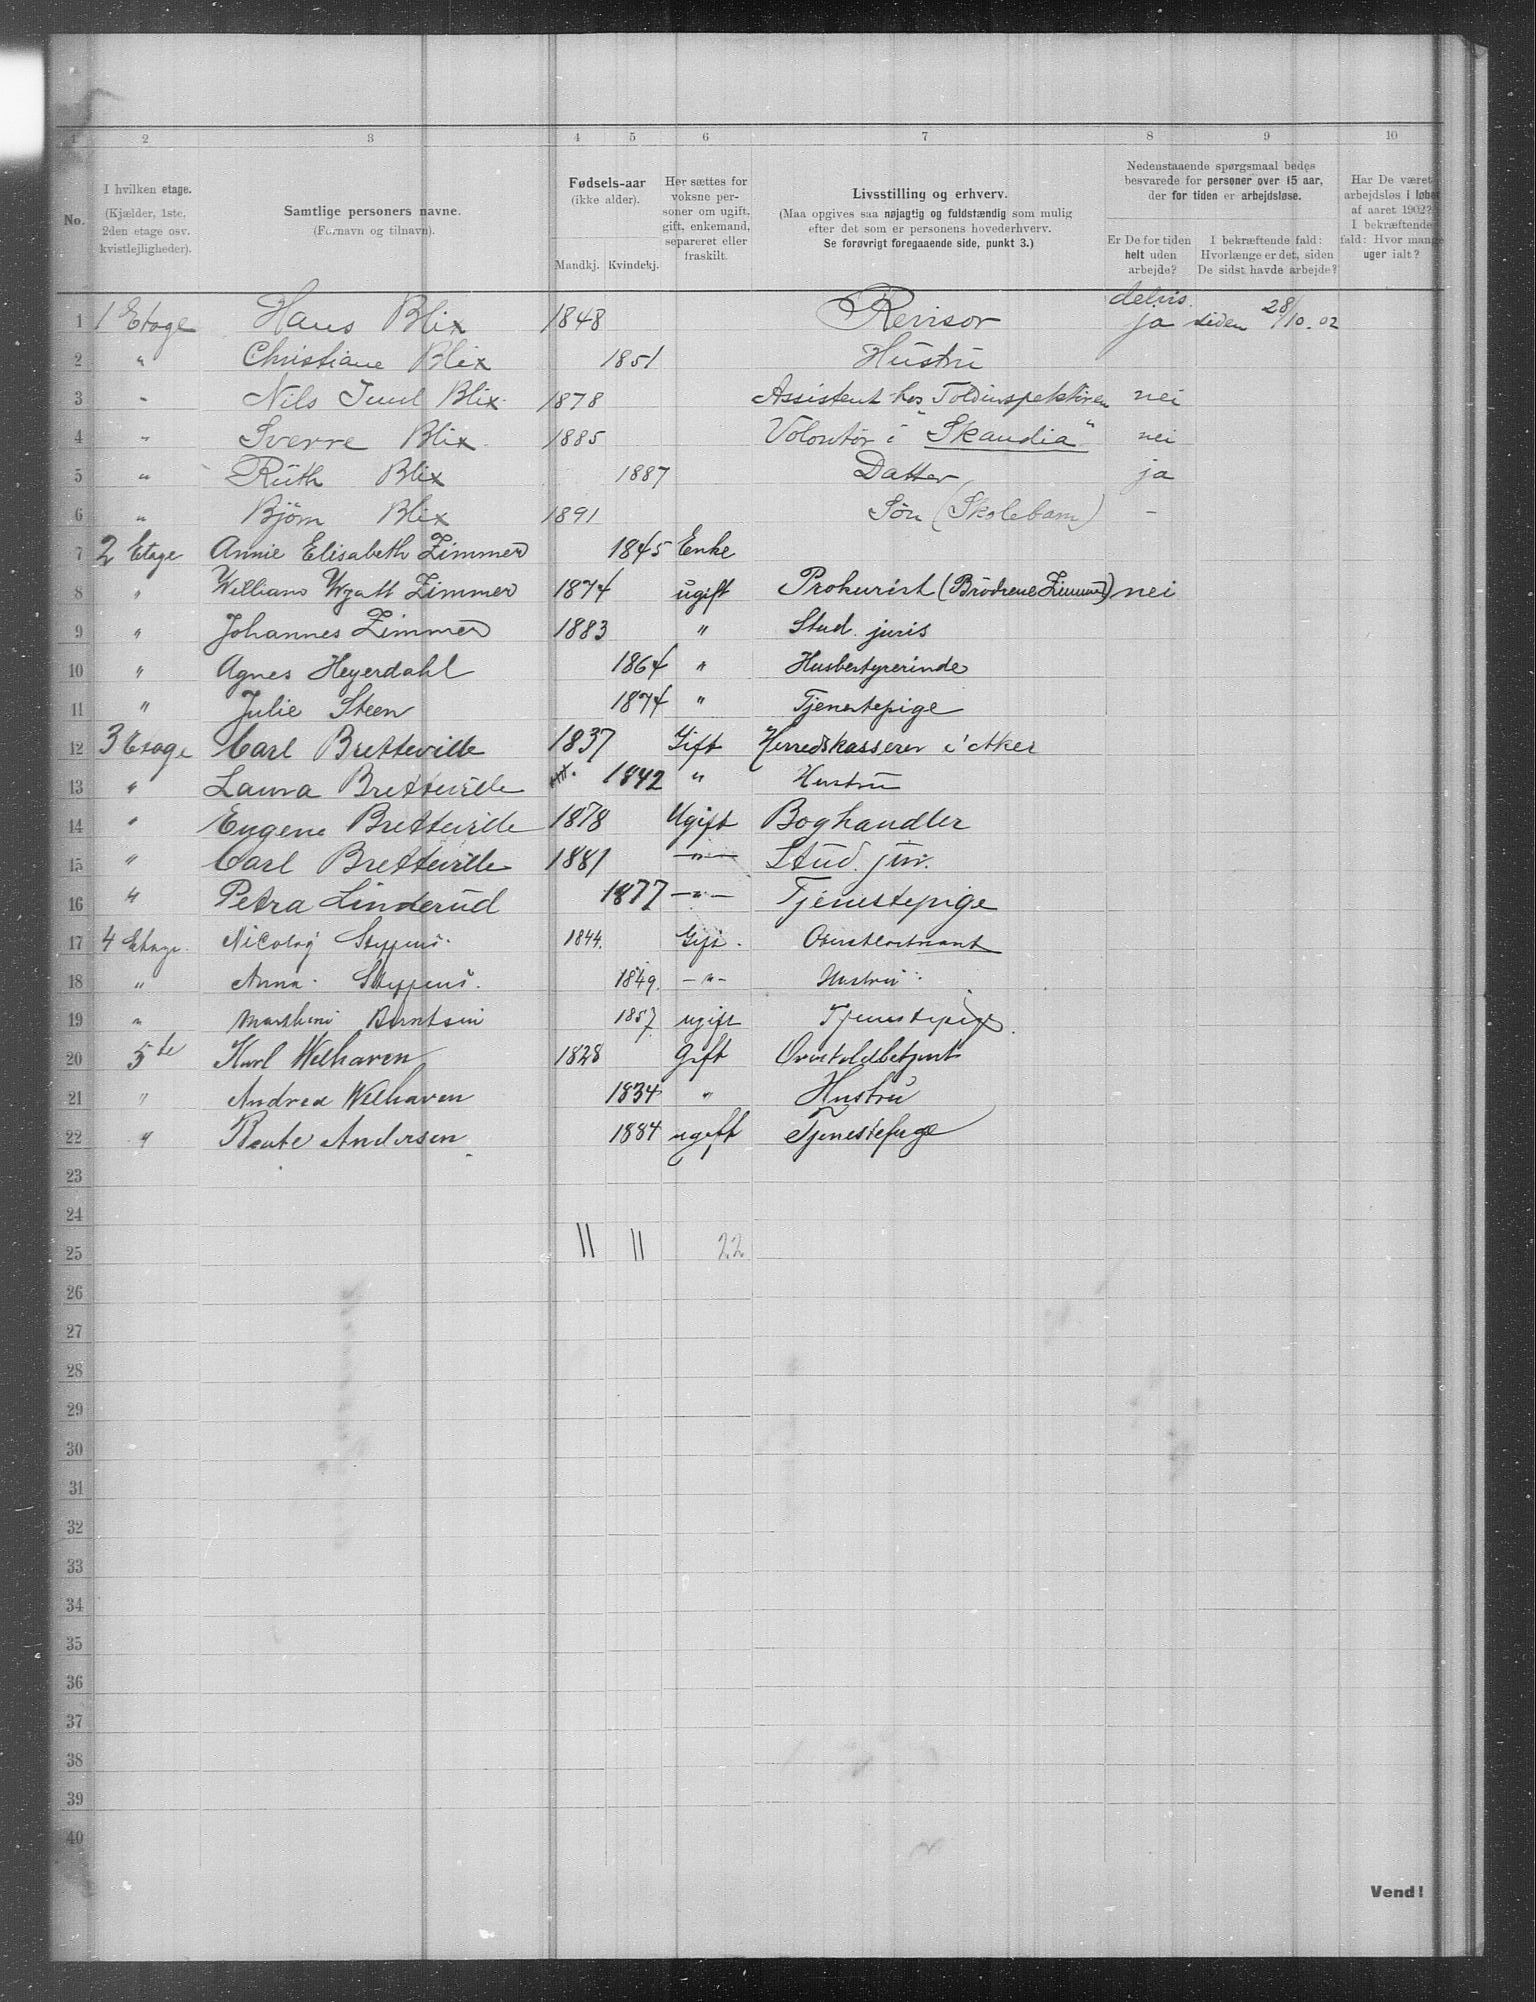 1 2 3 4 5 6 7 8 9 10
No.
I hvilken etage.
(Kjælder, 1ste,
2den etage osv.
kvistlejligheder).
Samtlige personers navne.
(Fornavn og tilnavn).
Fødsels-aar
(ikke alder).
Mandkj. Kvindekj.
Her sættes for
voksne per-
soner om ugift,
gift, enkemand,
separeret eller
fraskilt.
Livsstilling og erhverv.
(Maa opgives saa nøjagtig og fuldstændig som mulig
efter det som er personens hovederhverv.
Se forøvrigt foregaaende side, punkt 3.)
Nedenstaaende spørgsmaal bedes
besvarede for personer over 15 aar,
der for tiden er arbejdsløse.
Er De for tiden
helt uden
arbejde?
I bekræftende fald:
Hvorlænge er det, siden
De sidst havde arbejde?
Har De været
arbejdsløs i løbet
af aaret 1902?
I bekræftende
fald: Hvor mange
uger ialt?
1 1 Etage Hans Blix 1848 Revisor delvis ja siden 28/10.02
2 " Christiane Blix 1851 Hustru
3 " Nils Juul Blix 1878 Assistent hos Toldinspektören nei
4 " Sverre Blix 1885 Volontör i "Skandia" nei
5 " Ruth Blix 1887 Datter ja
6 " Björn Blix 1891 Sön (Skolebarn) -
7 2 Etage Annie Elisabeth Zimmer 1845 Enke
8 " William Wyatt Zimmer 1874 ugift Prokurist (Brödrene Zimmer) nei
9 " Johannes Zimmer 1883 " Stud. juris
10 " Agnes Heyerdahl 1864 " Husbestyrerinde
11 " Julie Steen 1874 " Tjenestepige
12 3 Etage Carl Bretteville 1837 Gift Herredskasserer i Aker
13 " Laura Bretteville 1842 " Hustru
14 " Eugene Bretteville 1878 Ugift Boghandler
15 " Carl Bretteville 1881 -"- Stud. jur.
16 " Petra Linderud 1877 -"- Tjenestepige
17 4 Etage Nicolay 1844. Gift. Oberstløitnant
18 " Anna 1849. -"- Hustru
19 " Marthini Berntsen 1857 ugift Tjenestepige
20 5te Karl Welhaven 1828 Gift
21 " Andrea Welhaven 1834 " Hustru
22 " Andersen 1884 ugift Tjenestepige
23
24
25 11 11 22
26
27
28
29
30
31
32
33
34
35
36
37
38
39
40
Vend!